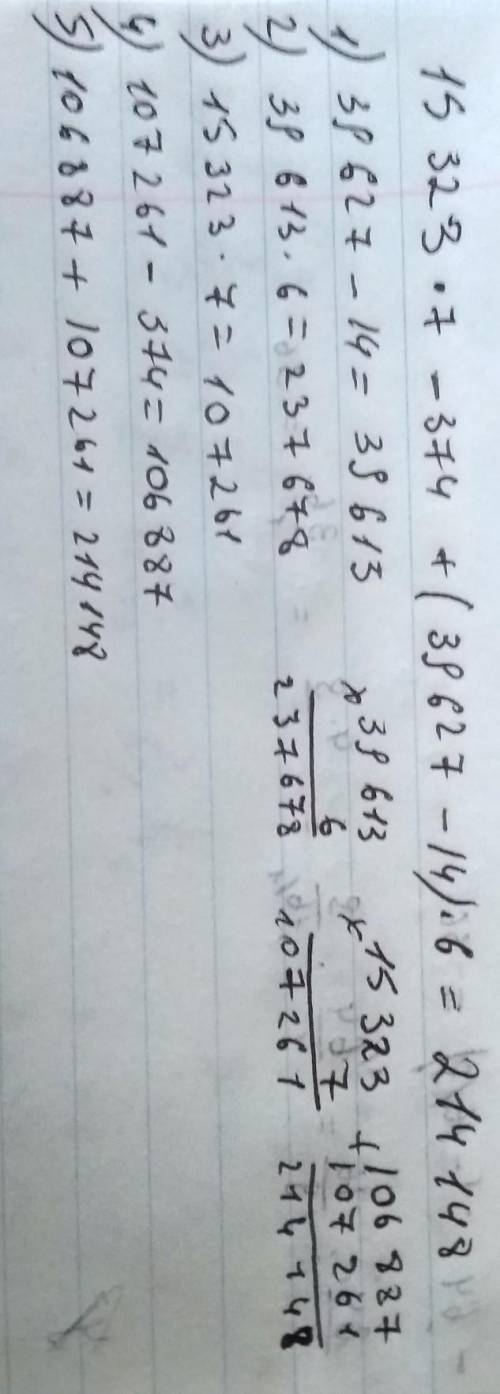 15 323 · 7 - 374 + (39 627 - 14) · 6 = 214 148
1) 39 627 - 14 = 39 613
2) 39 613 · 6 = 237 678
3) 15 323 · 7 = 107 261
4) 107 261 - 374 = 106 887
5) 106 887 + 107 261 = 214 148
× 39 613
6
237 678
× 15 323
7
107 261
+ 106 887
107 261
214 148